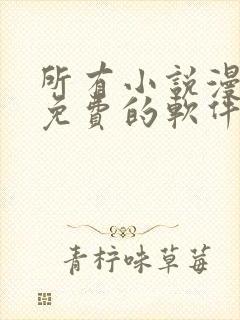 所有小說漫
免費的軟件
青柠味草莓